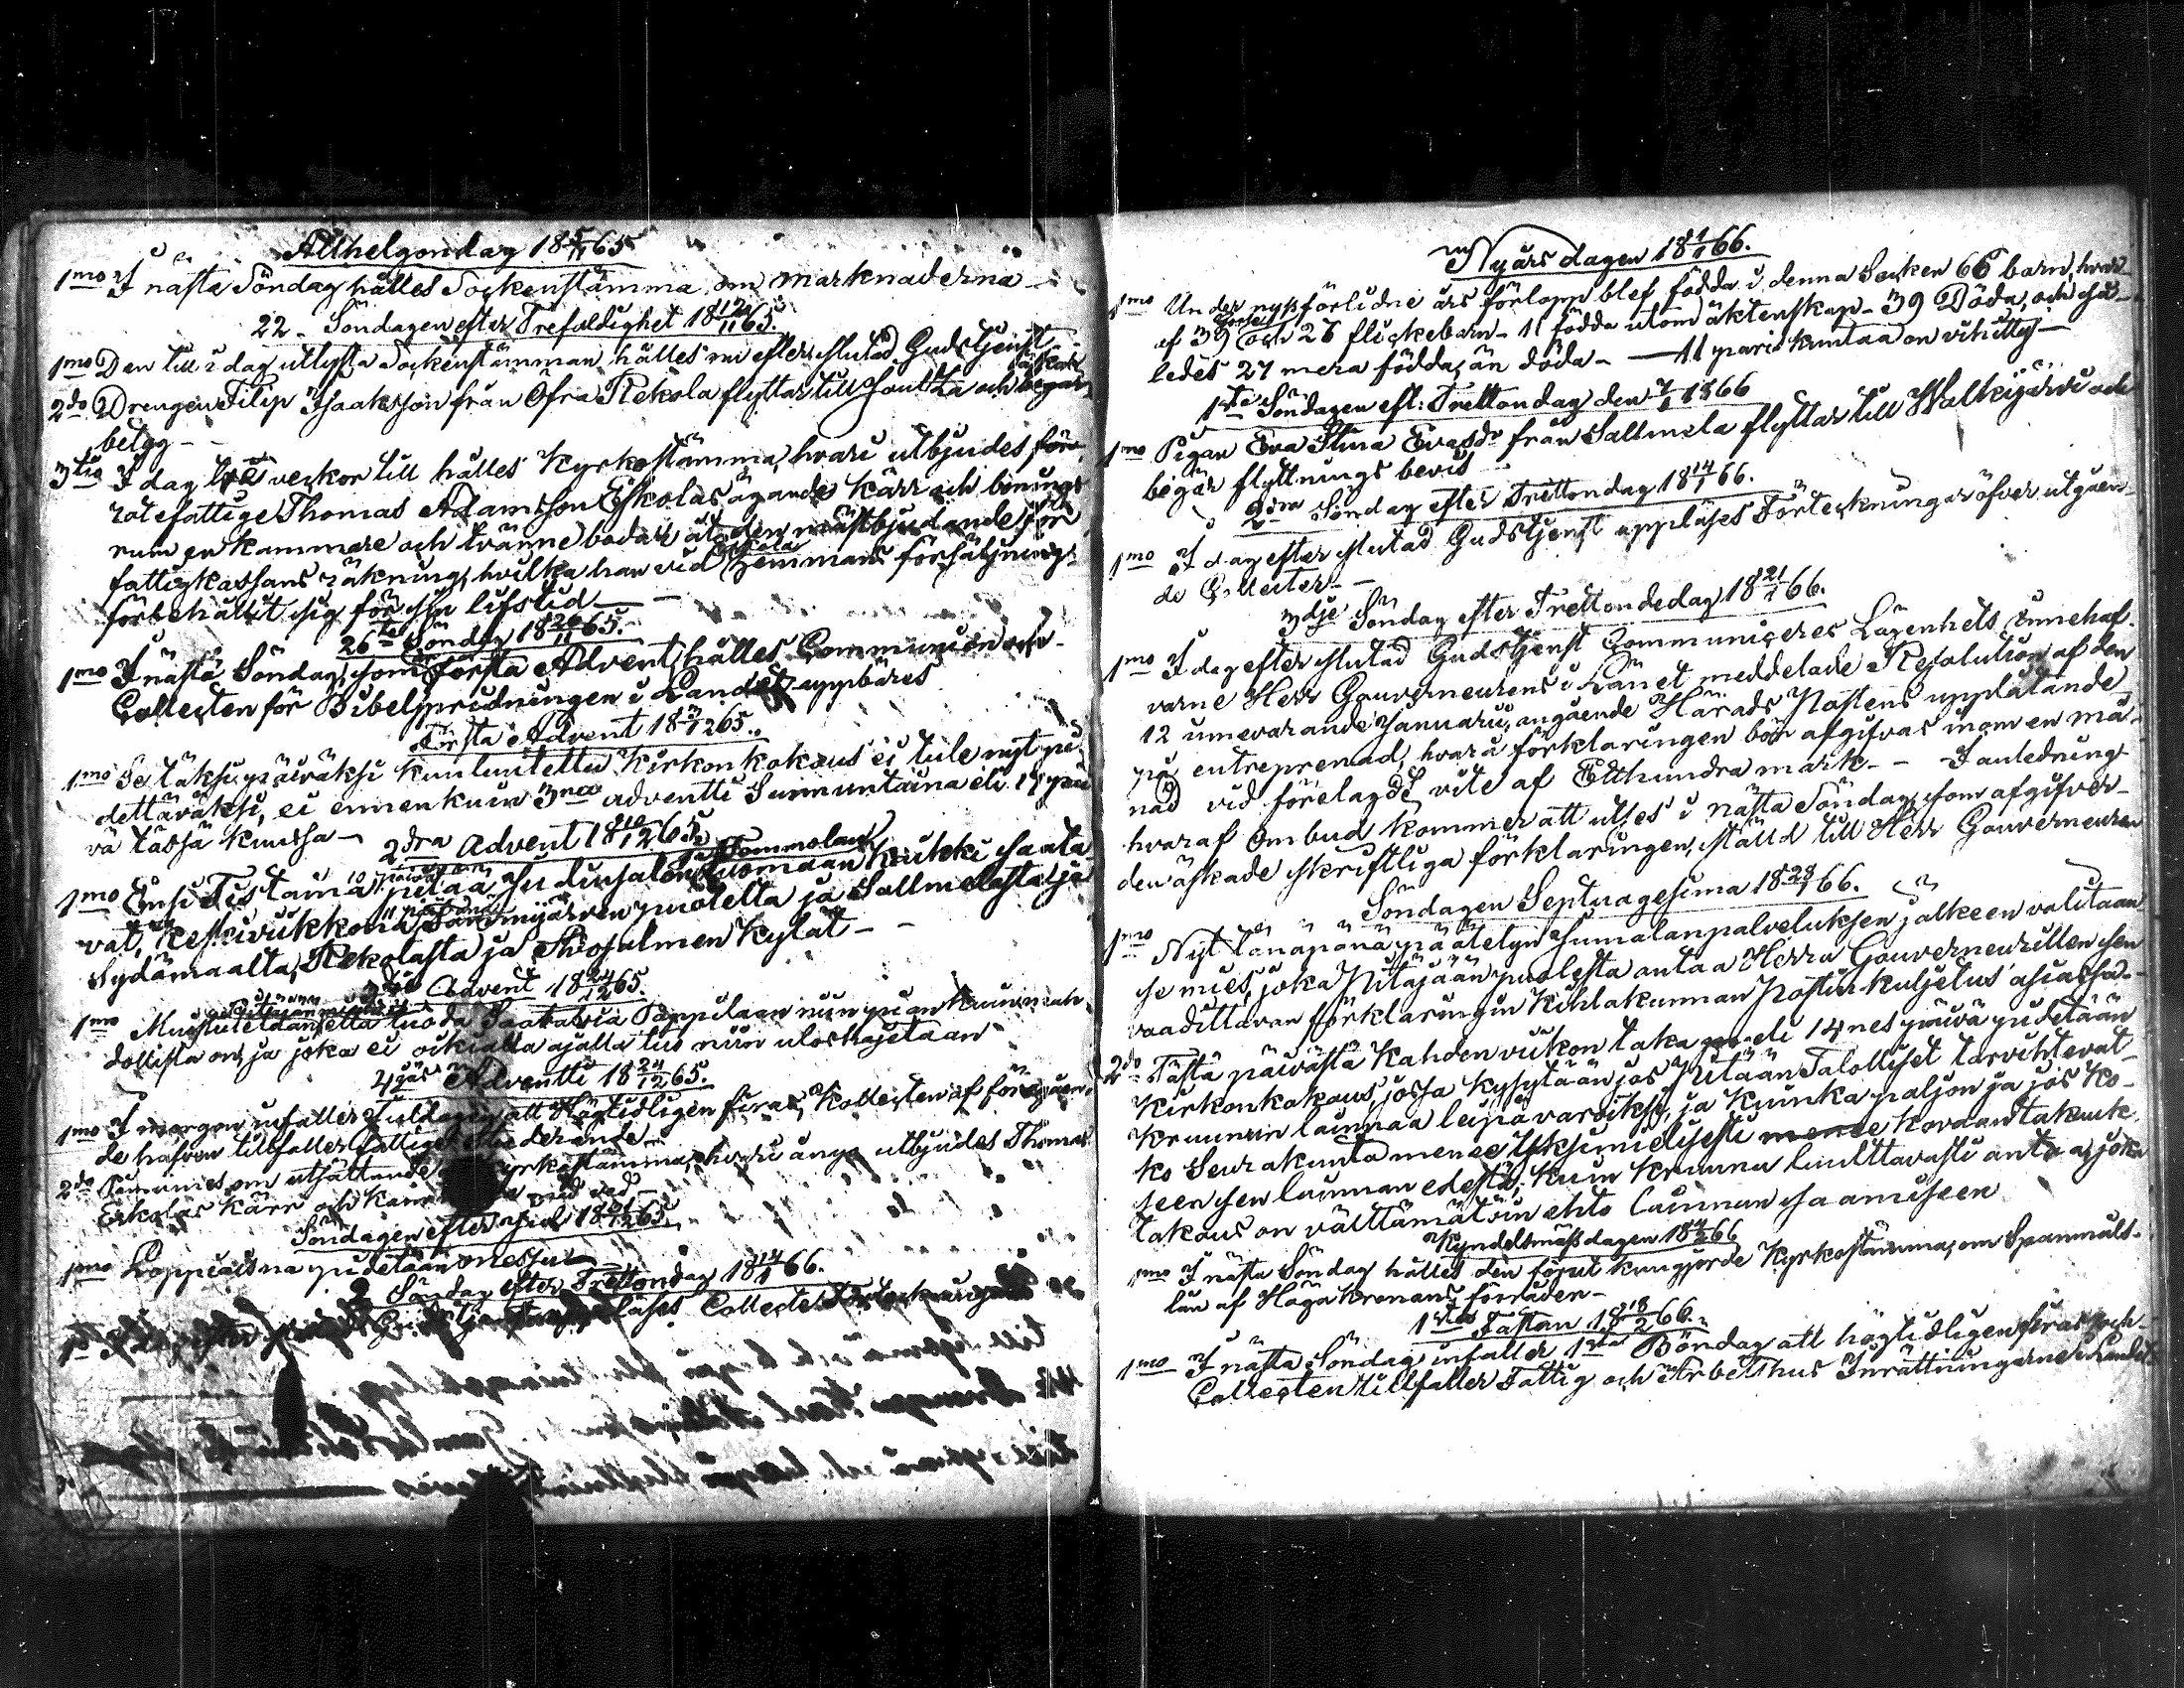 Althelgondag 18 5/11 65
1mo I nästa Söndag hålles Sockenstämma om marknaderna
22. Söndagen efter Trefaldighet 18 12/11 65.
1mo Den till i dag utlysta Sockenstämman hålles nu efter slutad Gudstjenst
2do Drengen Filip Isaaksson från Öfra Rekola flyttar till och begär
betyg
3tio I dag veckor till hålles Kyrkostämma, hvari utbjudes före
rotefattige Thomas Adamsson Eskolas ägande kärr och bonings
rum en kammare och tvänne bodar åt den mästbjudande för
fattigkassans räkning, hvilka han vid hemmans försäljning
förbehållit sig för sin lifstid
26te Söndag 18 26/11 65.
1mo I nästa Söndag, som Första Advent, hålles Communion och
Collecten för Bibelspridningen i Landet uppbäres
Första Advent 18 3/12 65.
1mo Se täksi päiväksi kuulutettu Kirkonkokous ei tule nyt pi-
dettäväksi, ei ennenkuin 3na adventti Sunnuntaina eli 17 päi
vä tässä kuussa
2dra Advent 18 10/12 65.
1mo Ensi Tistaina pitää Hommolan Ruukki saata
vat, Keskiviikkona puolella ja Sallmelasta ja
Sydämaalta, Rekolasta ja Kylät
Advent 18 17/12 65.
1mo Muistutetaan että tuoda Saatavia Pappilaan niin pian kuin mah
dollista on, ja joka ei oikialla ajalla tuo niin uloshajetaan
4jäs Adventti 18 24/12 65.
1mo I morgon infaller Juldagen att Högtidligen firas, Kollecten af föregåen
de hafven tillfaller fattige
2do om utsättande Kyrkostämma, hvari ånyo utbjudes Thomas
Eskolas Kärr och Kam
Söndagen efter Jul 18 31/12 65.
1mo Loppiaisna pidetään messu
2 Söndag efter Trettondag 18 14/1 66.
1o I dag efter slutad Gudstjenst uppläses Collecte Förteckningar
Nyårsdagen 18 1/1 66.
1mo Under nyssförlidne års förlopp blef födda i denna Socken 66 barn, hvar
af 39 och 26 flickebarn - 11 födda utom äktenskap - 39 Döda, och så
ledes 27 mera födda, än döda - 11 pariskuntaa on vihitty
1sta Söndagen eft: Trettondag den 7/1 1866
1mo Pigan Eva Stina Evasdr från Sallmela flyttar till Walkijärvi och
begär flyttnings bevis
2dra Söndag efter Trettondag 18 14/1 66.
1mo I dag efter slutad Gudstjenst uppläses Förteckningar öfver utgåen
de Collecter
3dje Söndag efter Trettondedag 18 21/1 66.
1mo I dag efter slutad Gudstjenst Communiceres Lägenhets innehaf-
varne Herr Gouverneurens i Länet meddelade Resolution af den
12 innevarande Januarii, angående Härads Postens upplåtande
på entreprenad, hvarå förklaringen bör afgifvas inom en må-
nad vid förelagdt vite af Etthundra mark - I anledning
hvaraf ombud kommer att utses i nästa Söndag, som afgifver
den äskade skriftliga förklaringen, ställd till Herr Gouverneuren
Söndagen Septuagesima 18 28/1 66.
1mo Nyt tänäpänä päätetyn Jumalanpalveluksen jälkeen valitaan
se mies, joka Pitäjään puolesta antaa Herra Gouverneurillen sen
vaadittavan förklaringin Kihlakunnan Postin kuljetus asiassa
2do Tästä päivästä Kahden viikon takana eli 14nes päivä pidetään
Kirkonkokous, jossa kysytään jos Pitään Talolliset tarvihtevat
Kruunun lainnaa leipävaroiksi, ja kuinka paljon ja jos ko-
ko Seurakunta menee yksimielisesti menee kovaantakuuk
seen sen lainnan edestä, kuin kruunu luultavasti antaa, joka
takaus on välttämätöin ehto lainnan saamiseen
Kyndelsmässdagen 18 4/2 66
1mo I nästa Söndag hålles den förut kungjorde Kyrkostämma, om Spanmåls-
lån af Höga Kronans förråder
1sta Fastan 18 18/2 66.
1mo I nästa Söndag infaller 1sta Böndag att högtidligen firas, och
Collecten tillfaller Fattig och Arbetshus Inrättningarne i Landet